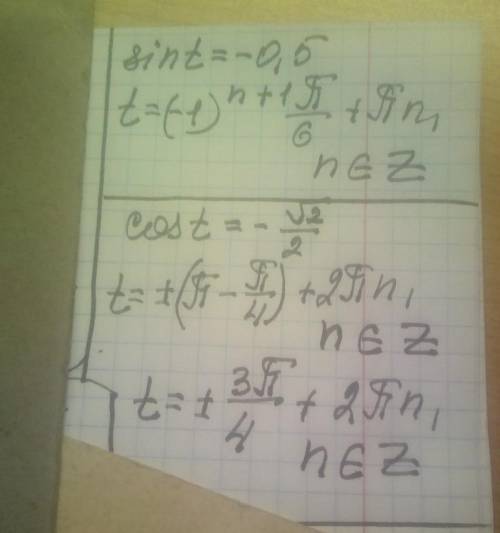 sin t = -0,5
t = (-1)^{n+1} π/6 + πn,
n ∈ Z
cos t = - √2/2
t = ±(π - π/4) + 2πn,
n ∈ Z
t = ± 3π/4 + 2πn,
n ∈ Z